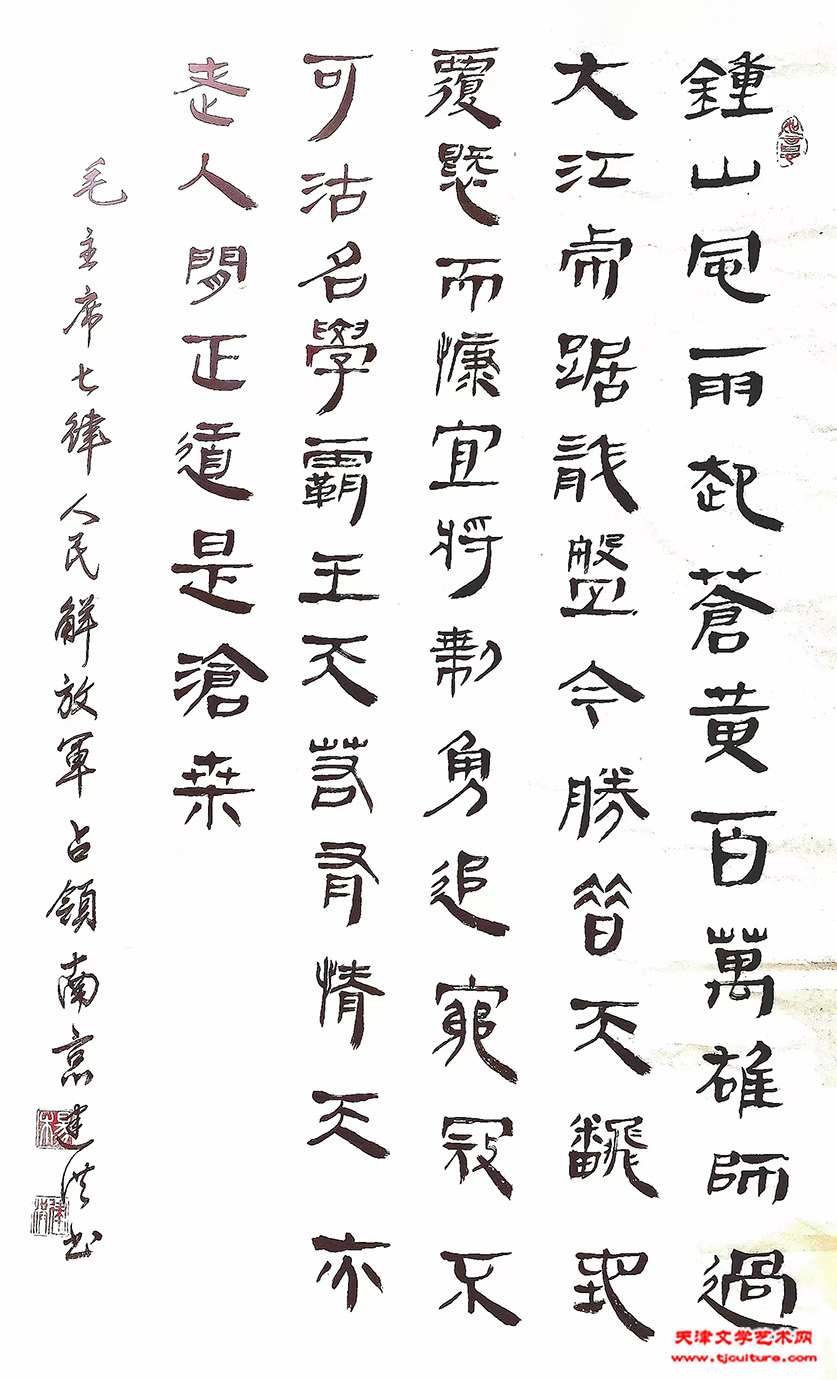 鍾山風雨起蒼黃百萬雄師過
大江虎踞龍盤今勝昔天翻地
覆慨而慷宜將剩勇追窮寇不
可沽名學霸王天若有情天亦
老人間正道是滄桑
毛主席七律人民解放軍占領南京建洪书
天津文学艺术网
www.tjculture.com